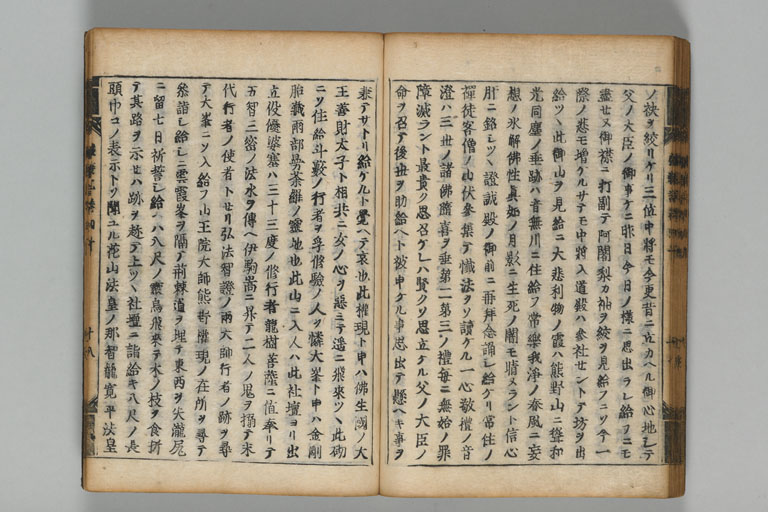 ノ袂ヲ絞リケリ三位中將モ今更昔ニ立カヘル御心地シテ
父ノ大臣ノ御事ケニ昨日今日ノ樣ニ思出ラレ給フニモ
盡セヌ御襟ニ打副テ阿闍梨カ袖ヲ絞ヲ見給フニソ今一
際ノ悲モ增ケルサテモ中將入道殿ハ參社サントテ坊ヲ出
給ツヽ此御山ヲ見給ニ大悲利物ノ霞ハ熊野山ニ聳和
光同塵ノ垂跡ハ音無川ニ住給フ常樂我淨ノ春風ニ妄
想ノ氷解佛性眞如ノ月影ニ生死ノ闇モ晴メラント信心
肝ニ銘シツヽ證誠殿ノ御前ニ再拜念誦シ給ケリ常住ノ
禪徒客僧ノ山伏參集テ懺法ヲソ讀ケル一心敬禮ノ音
澄ハ三世ノ諸佛隨喜ヲ垂第二第三ノ禮毎ニ無始ノ罪
障滅ラント最貴ク思召ケレハ賢クソ思立ケル父ノ大臣ノ
命ヲ召テ後世ヲ助給ヘト被申ケル事思出テ懸ヘキ事ヲ
兼テサトリ給ケルト覺ヘテ哀也此權現ト申ハ佛生國ノ大
王善財太子ト相共ニ女ノ心ヲ惡ミテ遥ニ飛來ツヽ此砌
ニソ住給斗藪ノ行者ヲ孚修驗ノ人ヲ憐大峯ト申ハ金剛
胎藏兩部曼荼羅ノ靈地也此山ニ入人ハ此社壇ヨリ出
立役優婆塞ハ三十三度ノ修行者龍樹菩薩ニ値奉リテ
五智三密ノ法水ヲ傳ヘ伊駒嵩ニ昇テ二人ノ鬼ヲ搦テ末
代行者ノ使者トセリ弘法智證ノ兩大師行者ノ跡ヲ尋
テ大峯ニソ入給フ山王院大師熊野權現ノ在所ヲ尋テ
參詣シ給シニ雲霞峯ヲ隔テ荊棘道ヲ埋テ東西ヲ失瀧尻
ニ留七日祈誓シ給ハ八尺ノ靈烏飛來テ木ノ枝ヲ食折
テ其路ヲ示セハ跡ヲ趁テ上ツヽ社壇ニ詣給キ八尺ノ長
頭巾コノ表示トソ聞ユル花山法皇ノ那智籠寛平法皇